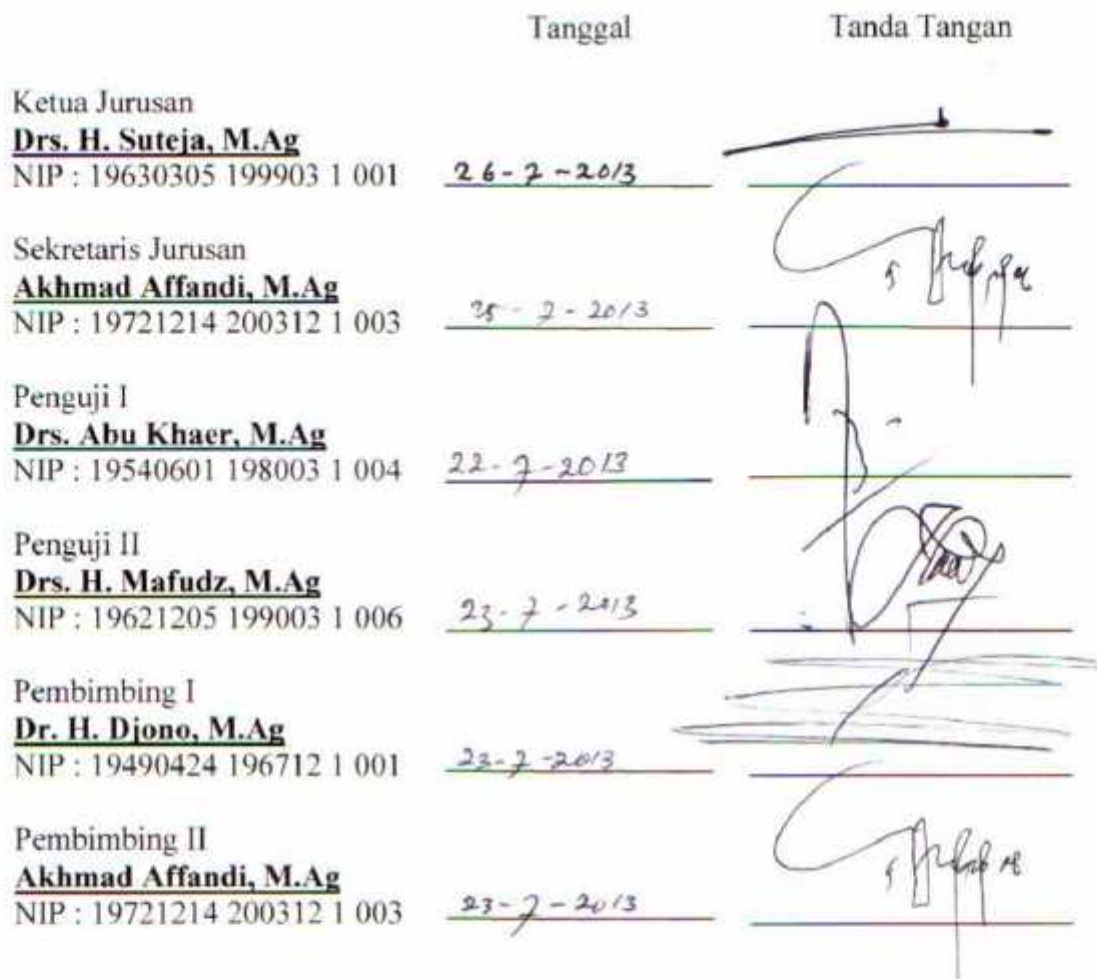 Tanggal Tanda Tangan
Ketua Jurusan
Drs. H. Suteja, M.Ag
NIP : 19630305 199903 1 001 26-7-2013
Sekretaris Jurusan
Akhmad Affandi, M.Ag
NIP : 19721214 200312 1 003 25-7-2013
Penguji I
Drs. Abu Khaer, M.Ag
NIP : 19540601 198003 1 004 22-7-2013
Penguji II
Drs. H. Mafudz, M.Ag
NIP : 19621205 199003 1 006 23-7-2013
Pembimbing I
Dr. H. Djono, M.Ag
NIP : 19490424 196712 1 001 23-7-2013
Pembimbing II
Akhmad Affandi, M.Ag
NIP : 19721214 200312 1 003 23-7-2013